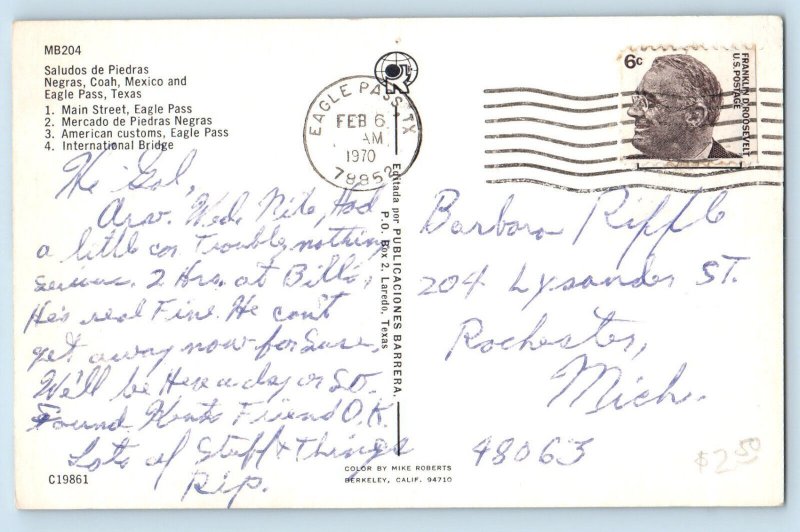 MB204
Saludos de Piedras
Negras, Coah, Mexico and
Eagle Pass, Texas
1. Main Street, Eagle Pass
2. Mercado de Piedras Negras
3. American customs, Eagle Pass
4. International Bridge
EAGLE PASS, TX
FEB 6
AM
1970
78852
6c
FRANKLIN D. ROOSEVELT
U.S. POSTAGE
Hi Gal,
Arrv. Wed. Nite, Had
a little car Trouble, nothing
serious. 2 Hrs. at Bill's,
He's real Fine. He can't
get away now for Sure,
We'll be Here a day or So.
Found Friend O.K.
Lots of Stuff & Things
Rip.
Editada por PUBLICACIONES BARRERA,
P.O. Box 2, Laredo, Texas
Barbara Riffle
204 Lysander ST.
Rochester,
Mich.
48063
$2.50
C19861
COLOR BY MIKE ROBERTS
BERKELEY, CALIF. 94710